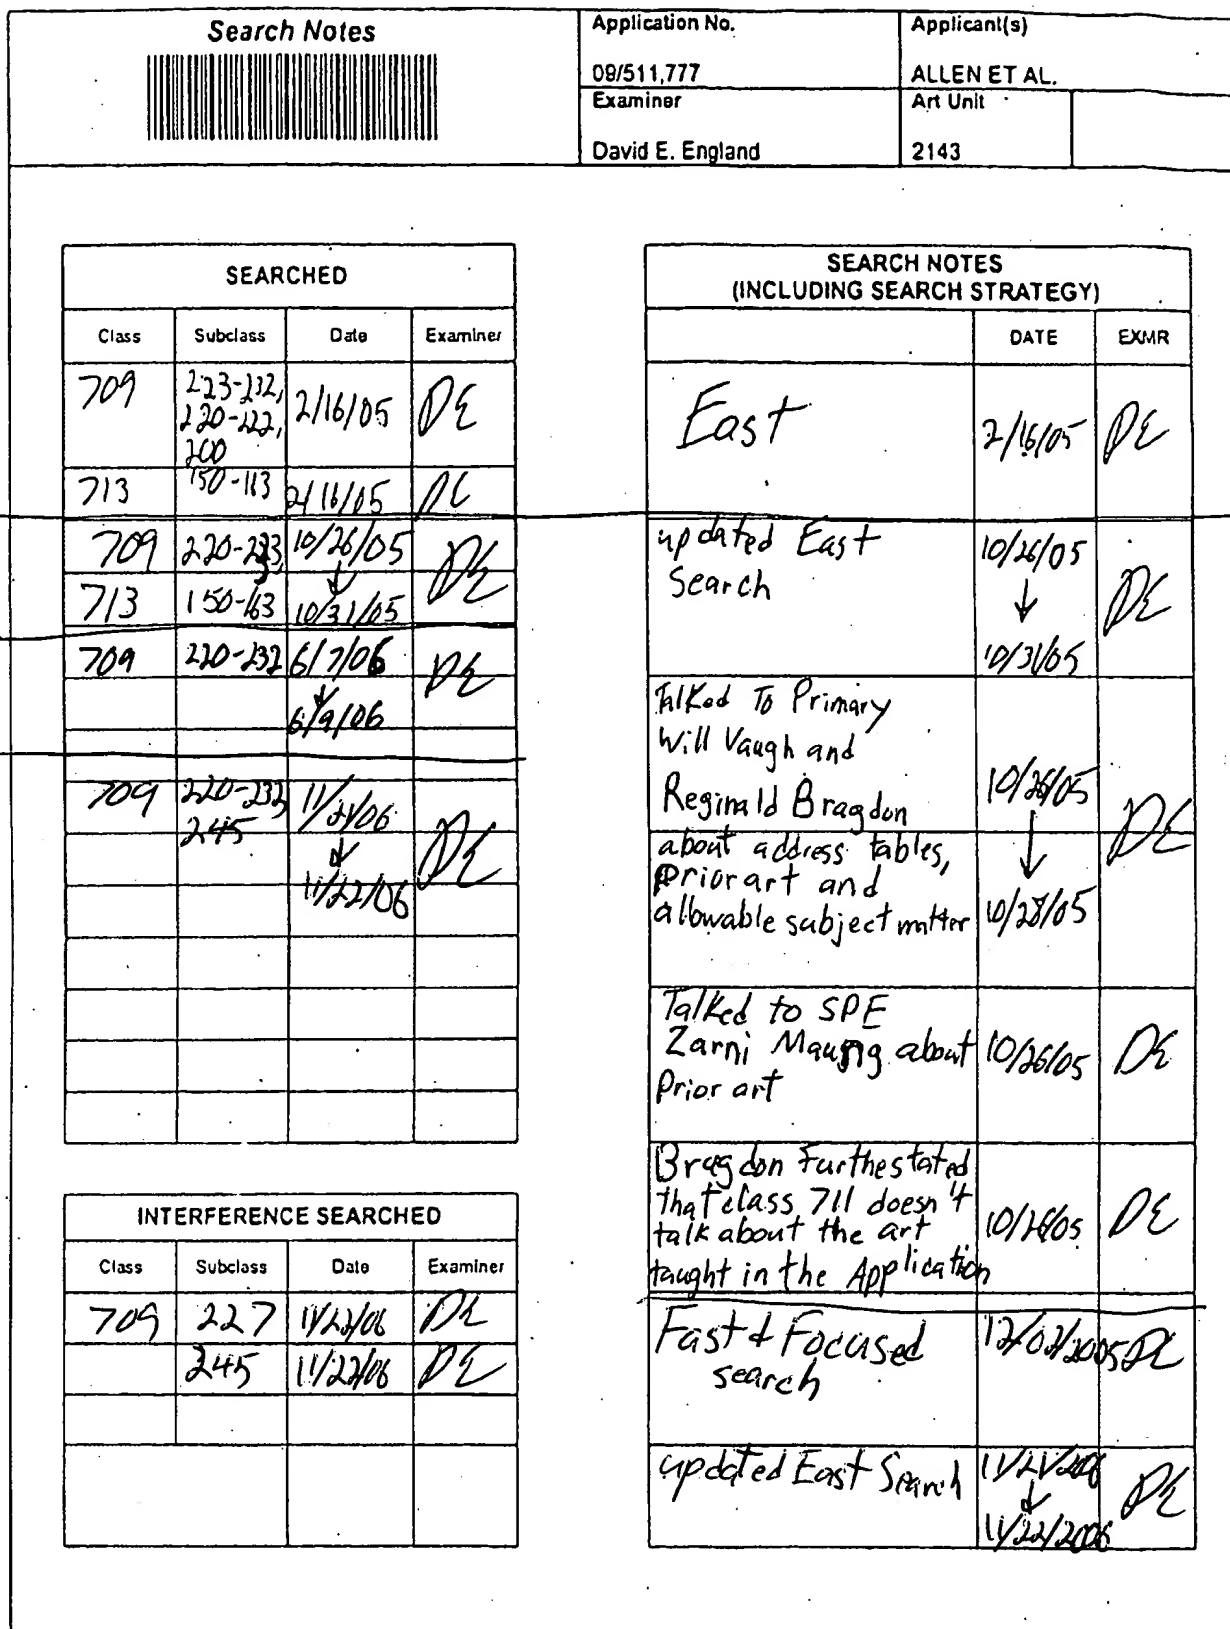 Search Notes
Application No.
Applicant(s)
09/511,777
ALLEN ET AL.
Examiner
Art Unit
David E. England
2143
SEARCHED
Class Subclass Date Examiner
709 223-232, 2/16/05 DE
220-222,
200
713 150-163 2/16/05 DE
709 220-233, 10/26/05 DE
713 150-163 10/31/05
709 220-232 6/7/06 DE
6/9/06
709 220-232, 11/21/06 DE
245
11/22/06
INTERFERENCE SEARCHED
Class Subclass Date Examiner
709 227 11/22/06 DE
245 11/22/06 DE
SEARCH NOTES
(INCLUDING SEARCH STRATEGY)
DATE EXMR
East 2/16/05 DE
updated East 10/26/05
Search DE
10/31/05
Talked To Primary
Will Vaugh and
Reginald Bragdon 10/26/05
about address tables, DE
Prior art and
allowable subject matter 10/28/05
Talked to SPE
Zarni Maung about 10/26/05 DE
Prior art
Bragdon Furthe stated
that class 711 doesn't
talk about the art 10/26/05 DE
taught in the Application
Fast & Focused 12/02/2005 DE
search
updated East Search 11/21/2006 DE
11/22/2006